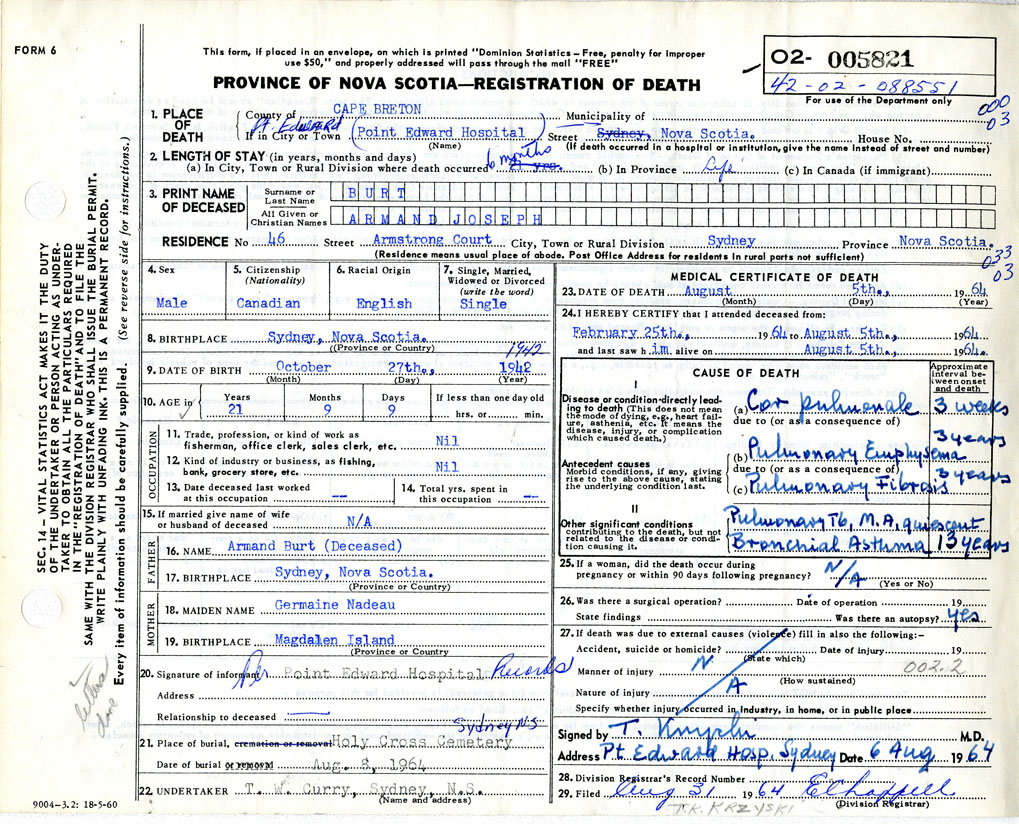 FORM 6
This form, if placed in an envelope, on which is printed "Dominion Statistics—Free, penalty for improper
use $50," and properly addressed will pass through the mail "FREE"
PROVINCE OF NOVA SCOTIA—REGISTRATION OF DEATH
O2- 005821
42-02-088551
For use of the Department only
000
03
SEC. 14 – VITAL STATISTICS ACT MAKES IT THE DUTY
OF THE UNDERTAKER OR PERSON ACTING AS UNDER-
TAKER TO OBTAIN ALL THE PARTICULARS REQUIRED
IN THE "REGISTRATION OF DEATH" AND TO FILE THE
SAME WITH THE DIVISION REGISTRAR WHO SHALL ISSUE THE BURIAL PERMIT.
WRITE PLAINLY WITH UNFADING INK. THIS IS A PERMANENT RECORD.
Every item of information should be carefully supplied. (See reverse side for instructions.)
1. PLACE OF DEATH
County of CAPE BRETON Municipality of
Pt. Edward
If in City or Town (Point Edward Hospital) Street Sydney, Nova Scotia. House No.
(Name) (If death occurred in a hospital or institution, give the name instead of street and number)
2. LENGTH OF STAY (in years, months and days)
(a) In City, Town or Rural Division where death occurred 6 months (b) In Province Life (c) In Canada (if immigrant)
3. PRINT NAME OF DECEASED
Surname or Last Name BURT
All Given or Christian Names ARMAND JOSEPH
RESIDENCE No 46 Street Armstrong Court City, Town or Rural Division Sydney Province Nova Scotia.
(Residence means usual place of abode. Post Office Address for residents in rural parts not sufficient)
033
03
4. Sex
Male
5. Citizenship (Nationality)
Canadian
6. Racial Origin
English
7. Single, Married, Widowed or Divorced (write the word)
Single
8. BIRTHPLACE Sydney, Nova Scotia.
(Province or Country)
1942
9. DATE OF BIRTH October 27th., 1942
(Month) (Day) (Year)
10. AGE in
Years Months Days If less than one day old
21 9 9 hrs. or min.
OCCUPATION
11. Trade, profession, or kind of work as
fisherman, office clerk, sales clerk, etc. Nil
12. Kind of industry or business, as fishing,
bank, grocery store, etc. Nil
13. Date deceased last worked
at this occupation --
14. Total yrs. spent in
this occupation --
15. If married give name of wife
or husband of deceased N/A
FATHER
16. NAME Armand Burt (Deceased)
17. BIRTHPLACE Sydney, Nova Scotia.
(Province or Country)
MOTHER
18. MAIDEN NAME Germaine Nadeau
19. BIRTHPLACE Magdalen Island
(Province or Country
20. Signature of informant Per Point Edward Hospital Records
Address
Relationship to deceased
Sydney N.S.
21. Place of burial, cremation or removal Holy Cross Cemetery
Date of burial or removal Aug. 8, 1964
22. UNDERTAKER T. W. Curry, Sydney, N.S.
(Name and address)
9004–3.2: 18-5-60
MEDICAL CERTIFICATE OF DEATH
23. DATE OF DEATH August 5th., 1964
(Month) (Day) (Year)
24. I HEREBY CERTIFY that I attended deceased from:
February 25th., 1964 to August 5th., 1964
and last saw him alive on August 5th., 1964.
CAUSE OF DEATH
Approximate interval between onset and death
I
Disease or condition directly leading to death (This does not mean the mode of dying, e.g., heart failure, asthenia, etc. It means the disease, injury, or complication which caused death.)
(a) Cor pulmonale 3 weeks
due to (or as a consequence of)
3 years
Antecedent causes
Morbid conditions, if any, giving rise to the above cause, stating the underlying condition last.
(b) Pulmonary Emphysema
due to (or as a consequence of) 3 years
(c) Pulmonary Fibrosis
II
Other significant conditions contributing to the death, but not related to the disease or condition causing it.
Pulmonary Tb, M.A, quiescent
Bronchial Asthma 13 years
25. If a woman, did the death occur during
pregnancy or within 90 days following pregnancy? N/A
(Yes or No)
26. Was there a surgical operation? Date of operation 19
State findings Was there an autopsy? yes
27. If death was due to external causes (violence) fill in also the following:—
Accident, suicide or homicide? Date of injury 19
(State which)
Manner of injury N/A 002.2
(How sustained)
Nature of injury
Specify whether injury occurred in industry, in home, or in public place
Signed by T. M.D.
Address Pt. Edward Hosp, Sydney Date 6 Aug 1964
28. Division Registrar's Record Number
29. Filed Aug 31 1964
(Division Registrar)
T.K. KRZYSKI